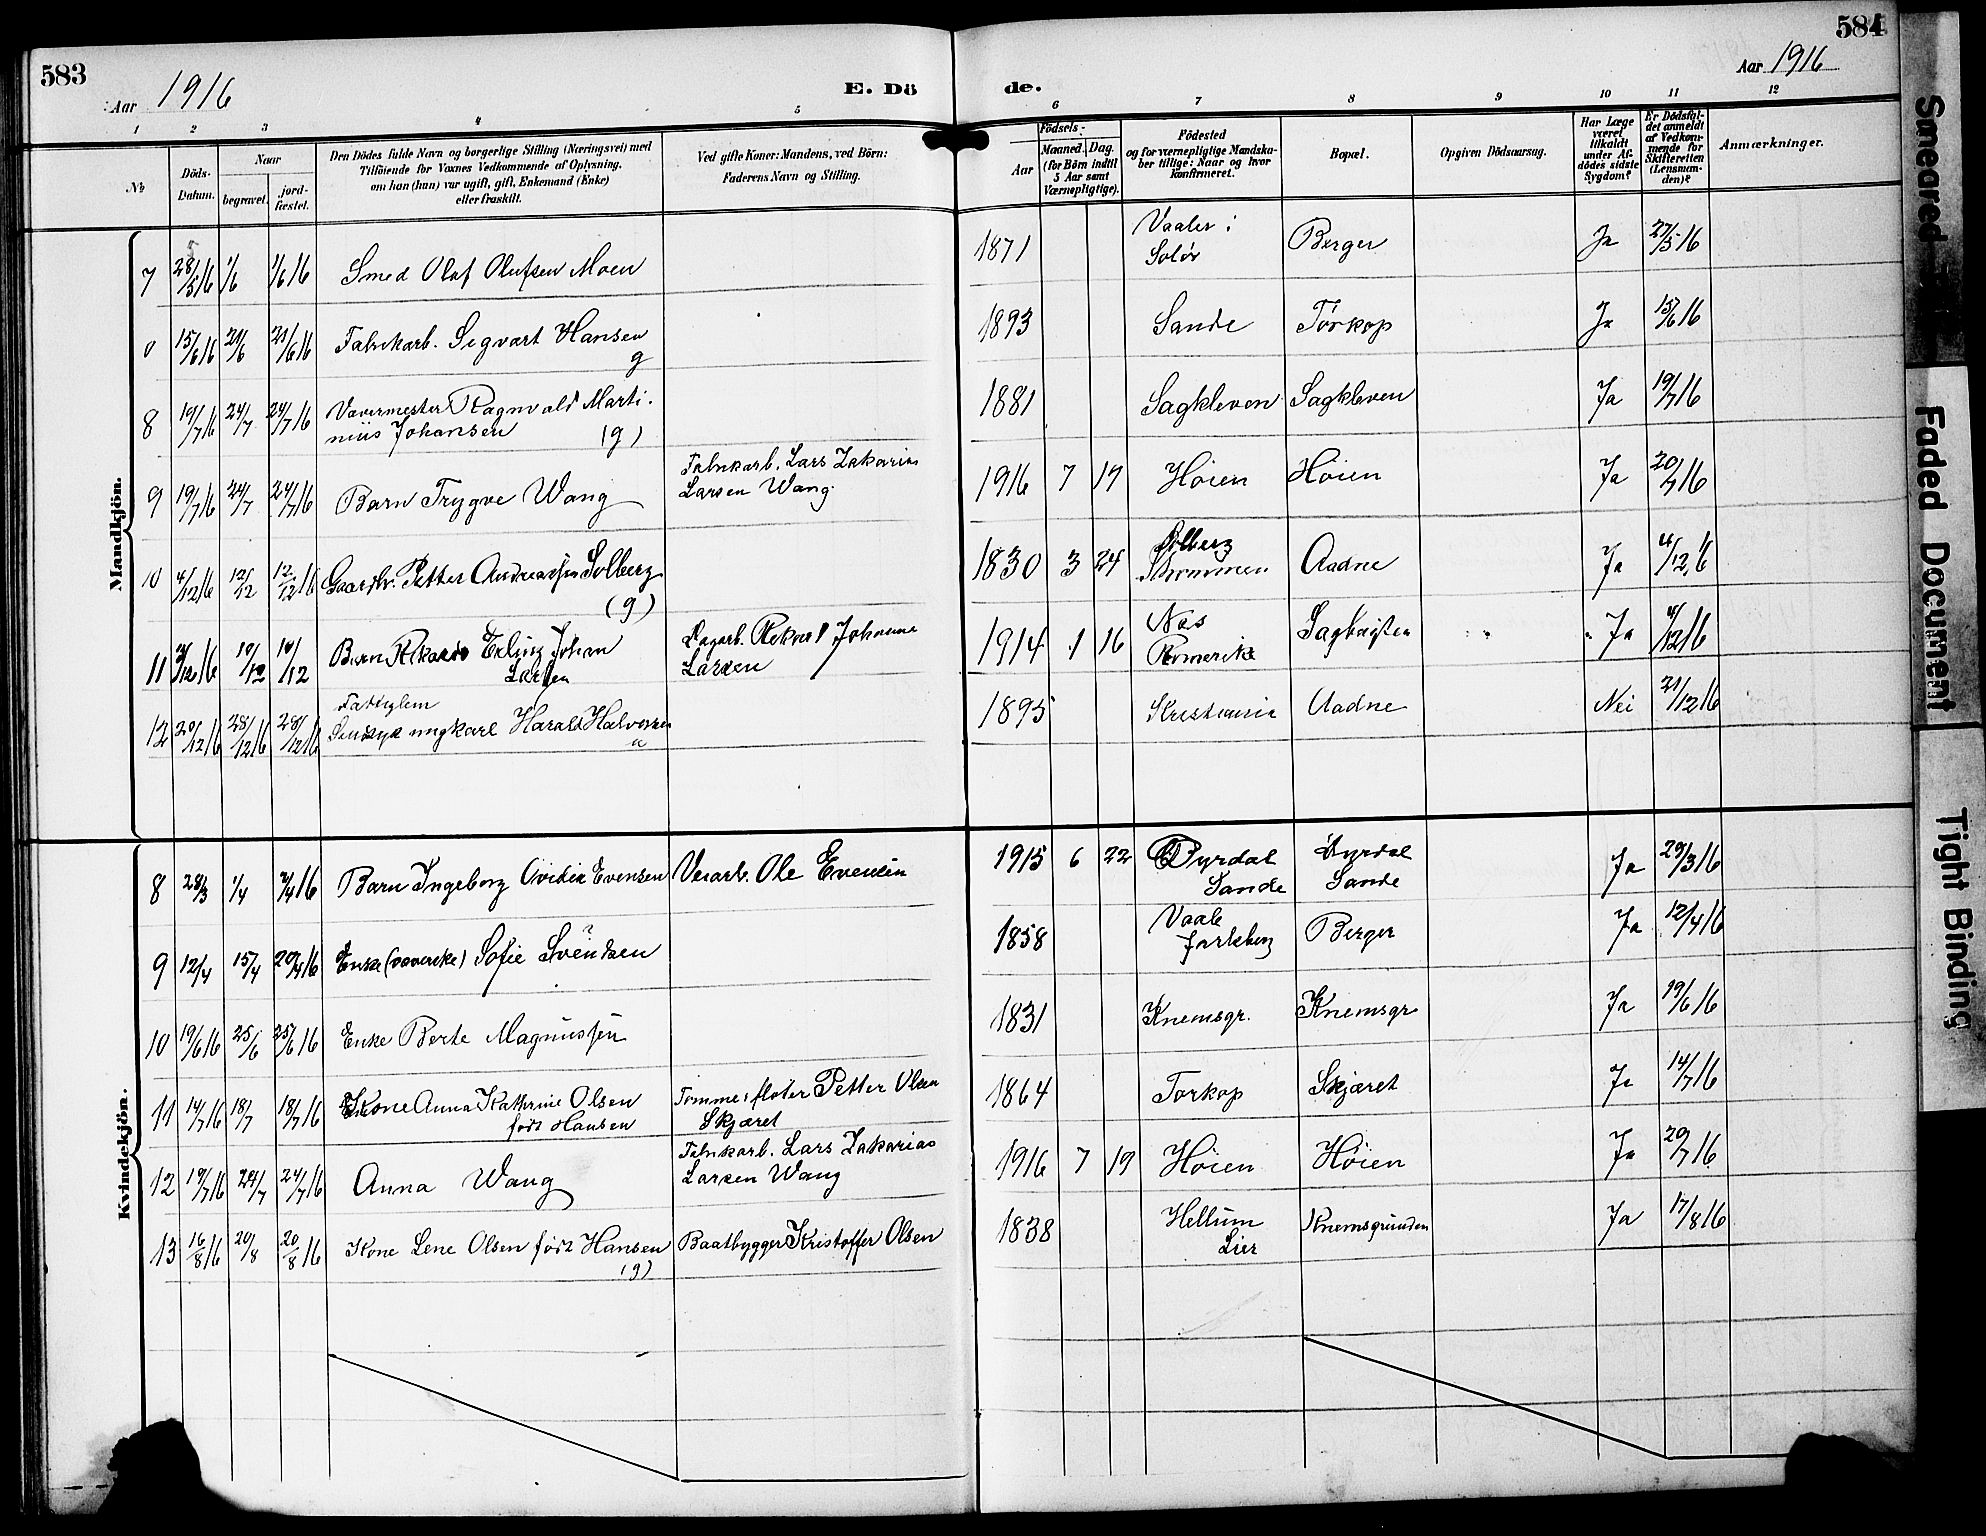 583
Aar 1916
E. Dö
de.
584
Aar 1916
1 2 3 4 5 6 7 8 9 10 11 12
No
Döds-
Datum.
Naar
begravet.
jord-
fæstet.
Den Dödes fulde Navn og borgerlige Stilling (Næringsvei) med
Tilföiende for Voxnes Vedkommende af Oplysning,
om han (hun) var ugift, gift, Enkemand (Enke)
eller fraskilt.
Ved gifte Koner: Mandens, ved Börn:
Faderens Navn og Stilling.
Födsels-
Aar
Maaned. Dag.
(for Börn indtil
5 Aar samt
Værnepligtige).
Födested
og for værnepligtige Mandska-
ber tillige: Naar og hvor
konfirmeret.
Bopæl.
Opgiven Dödsaarsag.
Har Læge
været
tilkaldt
under Af-
dödes sidste
Sygdom?
Er Dödsfal-
det anmeldt
af Vedkom-
mende for
Skifteretten
(Lensman-
den)?
Anmærkninger.
Mandkjön.
7 28/5 16 1/6 1/6 16 Smed Olaf Olufsen Moen 1871 Vaaler i Solör Berger Ja 27/5 16
15/6 16 21/6 21/6 16 Fabrikarb. Sigvart Hansen g 1893 Sande Törkop Ja 15/6 16
8 19/7 16 24/7 24/7 16 Vævermester Ragnvald Marti-
nius Johansen (g) 1881 Sagkleven Sagkleven Ja 19/7 16
9 19/7 16 24/7 24/7 16 Barn Trygve Wang Fabrikarb. Lars Zakarias
Larsen Wang 1916 7 19 Höien Höien Ja 20/7 16
10 4/12 16 12/12 12/12 16 Gaardbr. Petter Andreassen Solberg
(g) 1830 3 24 Solberg
Strømmen Aadne Ja 4/12 16
11 4/12 16 10/12 10/12 Barn Rikard Erling Johan
Larsen Dagarb. Rikard Johannes
Larsen 1914 1 16 Nes
Romerike Saghaugen Ja 4/12 16
12 20/12 16 28/12 16 28/12 16 Fattiglem
Sindsyk ungkarl Harald Halvorsen
u 1895 Kristiania Aadne Nei 21/12 16
Kvindekjön.
8 28/3 1/4 2/4 16 Barn Ingeborg Ovidia Evensen Veiarb. Ole Evensen 1915 6 22 Dyrdal
Sande Dyrdal
Sande Ja 29/3 16
9 12/4 15/4 20/4 16 Enke (væverske) Sofie Svendsen 1858 Vaale
Jarlsberg Berger Ja 12/4 16
10 19/6 16 25/6 25/6 16 Enke Berte Magnussen 1831 Knemsgr. Knemsgr Ja 19/6 16
11 14/7 16 18/7 18/7 16 Kone Anna Kathrine Olsen
född Hansen Tømmerfløter Petter Olsen
Skjæret 1864 Torkop Skjæret Ja 14/7 16
12 19/7 16 24/7 24/7 16 Anna Wang Fabrikarb. Lars Zakarias
Larsen Wang 1916 7 19 Höien Höien Ja 20/7 16
13 16/8 16 20/8 20/8 16 Kone Lene Olsen född Hansen
(g) Baatbygger Kristoffer Olsen 1838 Hellum
Lier Knemsgrunden Ja 17/8 16
Smeared
Faded Document
Tight Binding